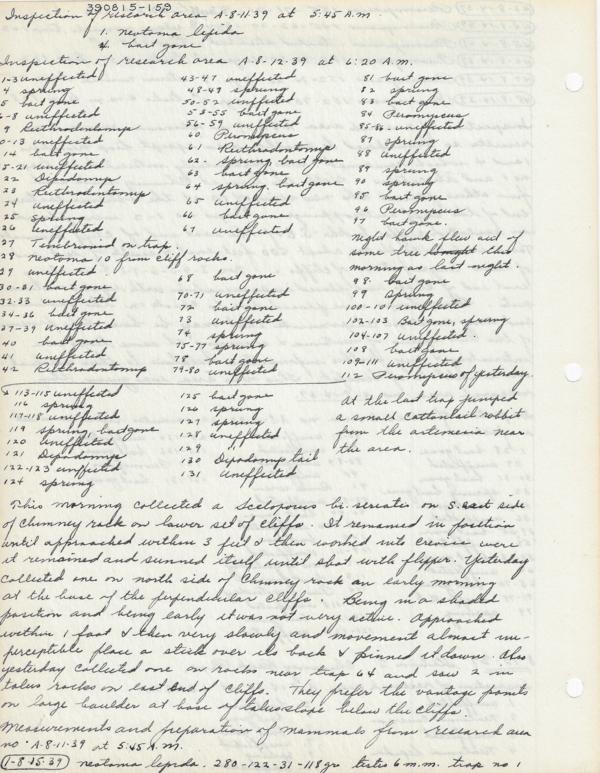 390815-153
Inspection of research area A-8-11-39 at 5:45 A.M.
1. neotoma lepida
4. bait gone
Inspection of research area A-8-12-39 at 6:20 A.M.
1-3 uneffected
4 sprung
5 bait gone
6-8 uneffected
9 Reithrodontomys
0-13 uneffected
14 bait gone
5-21 uneffected
22 Dipodomys
23 Reithrodontomys
24 uneffected
25 sprung
26 uneffected
27 Tenebrionid on trap.
28 neotoma 10 from cliff rocks.
29 uneffected
30-31 bait gone
32-33 uneffected
34-36 bait gone
37-39 uneffected
40 bait gone
41 uneffected
42 Reithrodontomys
43-47 uneffected
48-49 sprung
50-52 uneffected
53-55 bait gone
56-59 uneffected
60 Peromyscus
61 Reithrodontomys
62. sprung, bait gone
63 bait gone
64 sprung, bait gone
65 uneffected
66 bait gone
67 uneffected
68 bait gone
70-71 uneffected
72 bait gone
73 uneffected
74 sprung
75-77 sprung
78 bait gone
79-80 uneffected
81 bait gone
82 sprung
83 bait gone
84 Peromyscus
85-86 uneffected
87 sprung
88 uneffected
89 sprung
90 sprung
95 bait gone
96 Peromyscus
97 bait gone.
night hawk flew out of
some tree this
morning as last night.
98 bait gone
99 sprung
100-101 uneffected
102-103 Bait gone, sprung
104-107 uneffected.
108 bait gone
109-111 uneffected
112 Peromyscus of yesterday
113-115 uneffected
116 sprung
117-118 uneffected
119 sprung, bait gone
120 uneffected
121 Dipodomys
122-123 uneffected
124 sprung
125 bait gone
126 sprung
127 sprung
128 uneffected
129 "
130 Dipodomys tail
131 uneffected
At the last trap jumped
a small cottontail rabbit
from the artemesia near
the area.
This morning collected a Sceloporus bi-seriates on S. east side
of chimney rock on lower set of cliffs. It remained in position
until approached within 3 feet & then worked into crevice were
it remained and sunned itself until shot with flipper. Yesterday
collected one on north side of Chimney rock an early morning
at the base of the perpendicular cliffs. Being in a shaded
position and being early it was not very active. Approached
within 1 foot & then very slowly and movement almost im-
perceptible place a stick over its back & pinned it down. Also
yesterday collected one on rocks near trap 64 and saw 2 in
talus rocks on east end of cliffs. They prefer the vantage points
on large boulder at base of talus slope below the cliffs.
Measurements and preparation of mammals from research area
no. A-8-11-39 at 5:45 A.M.
1-8-15-39 neotoma lepida. 280-122-31-118 gr testes 6 m.m. trap no 1